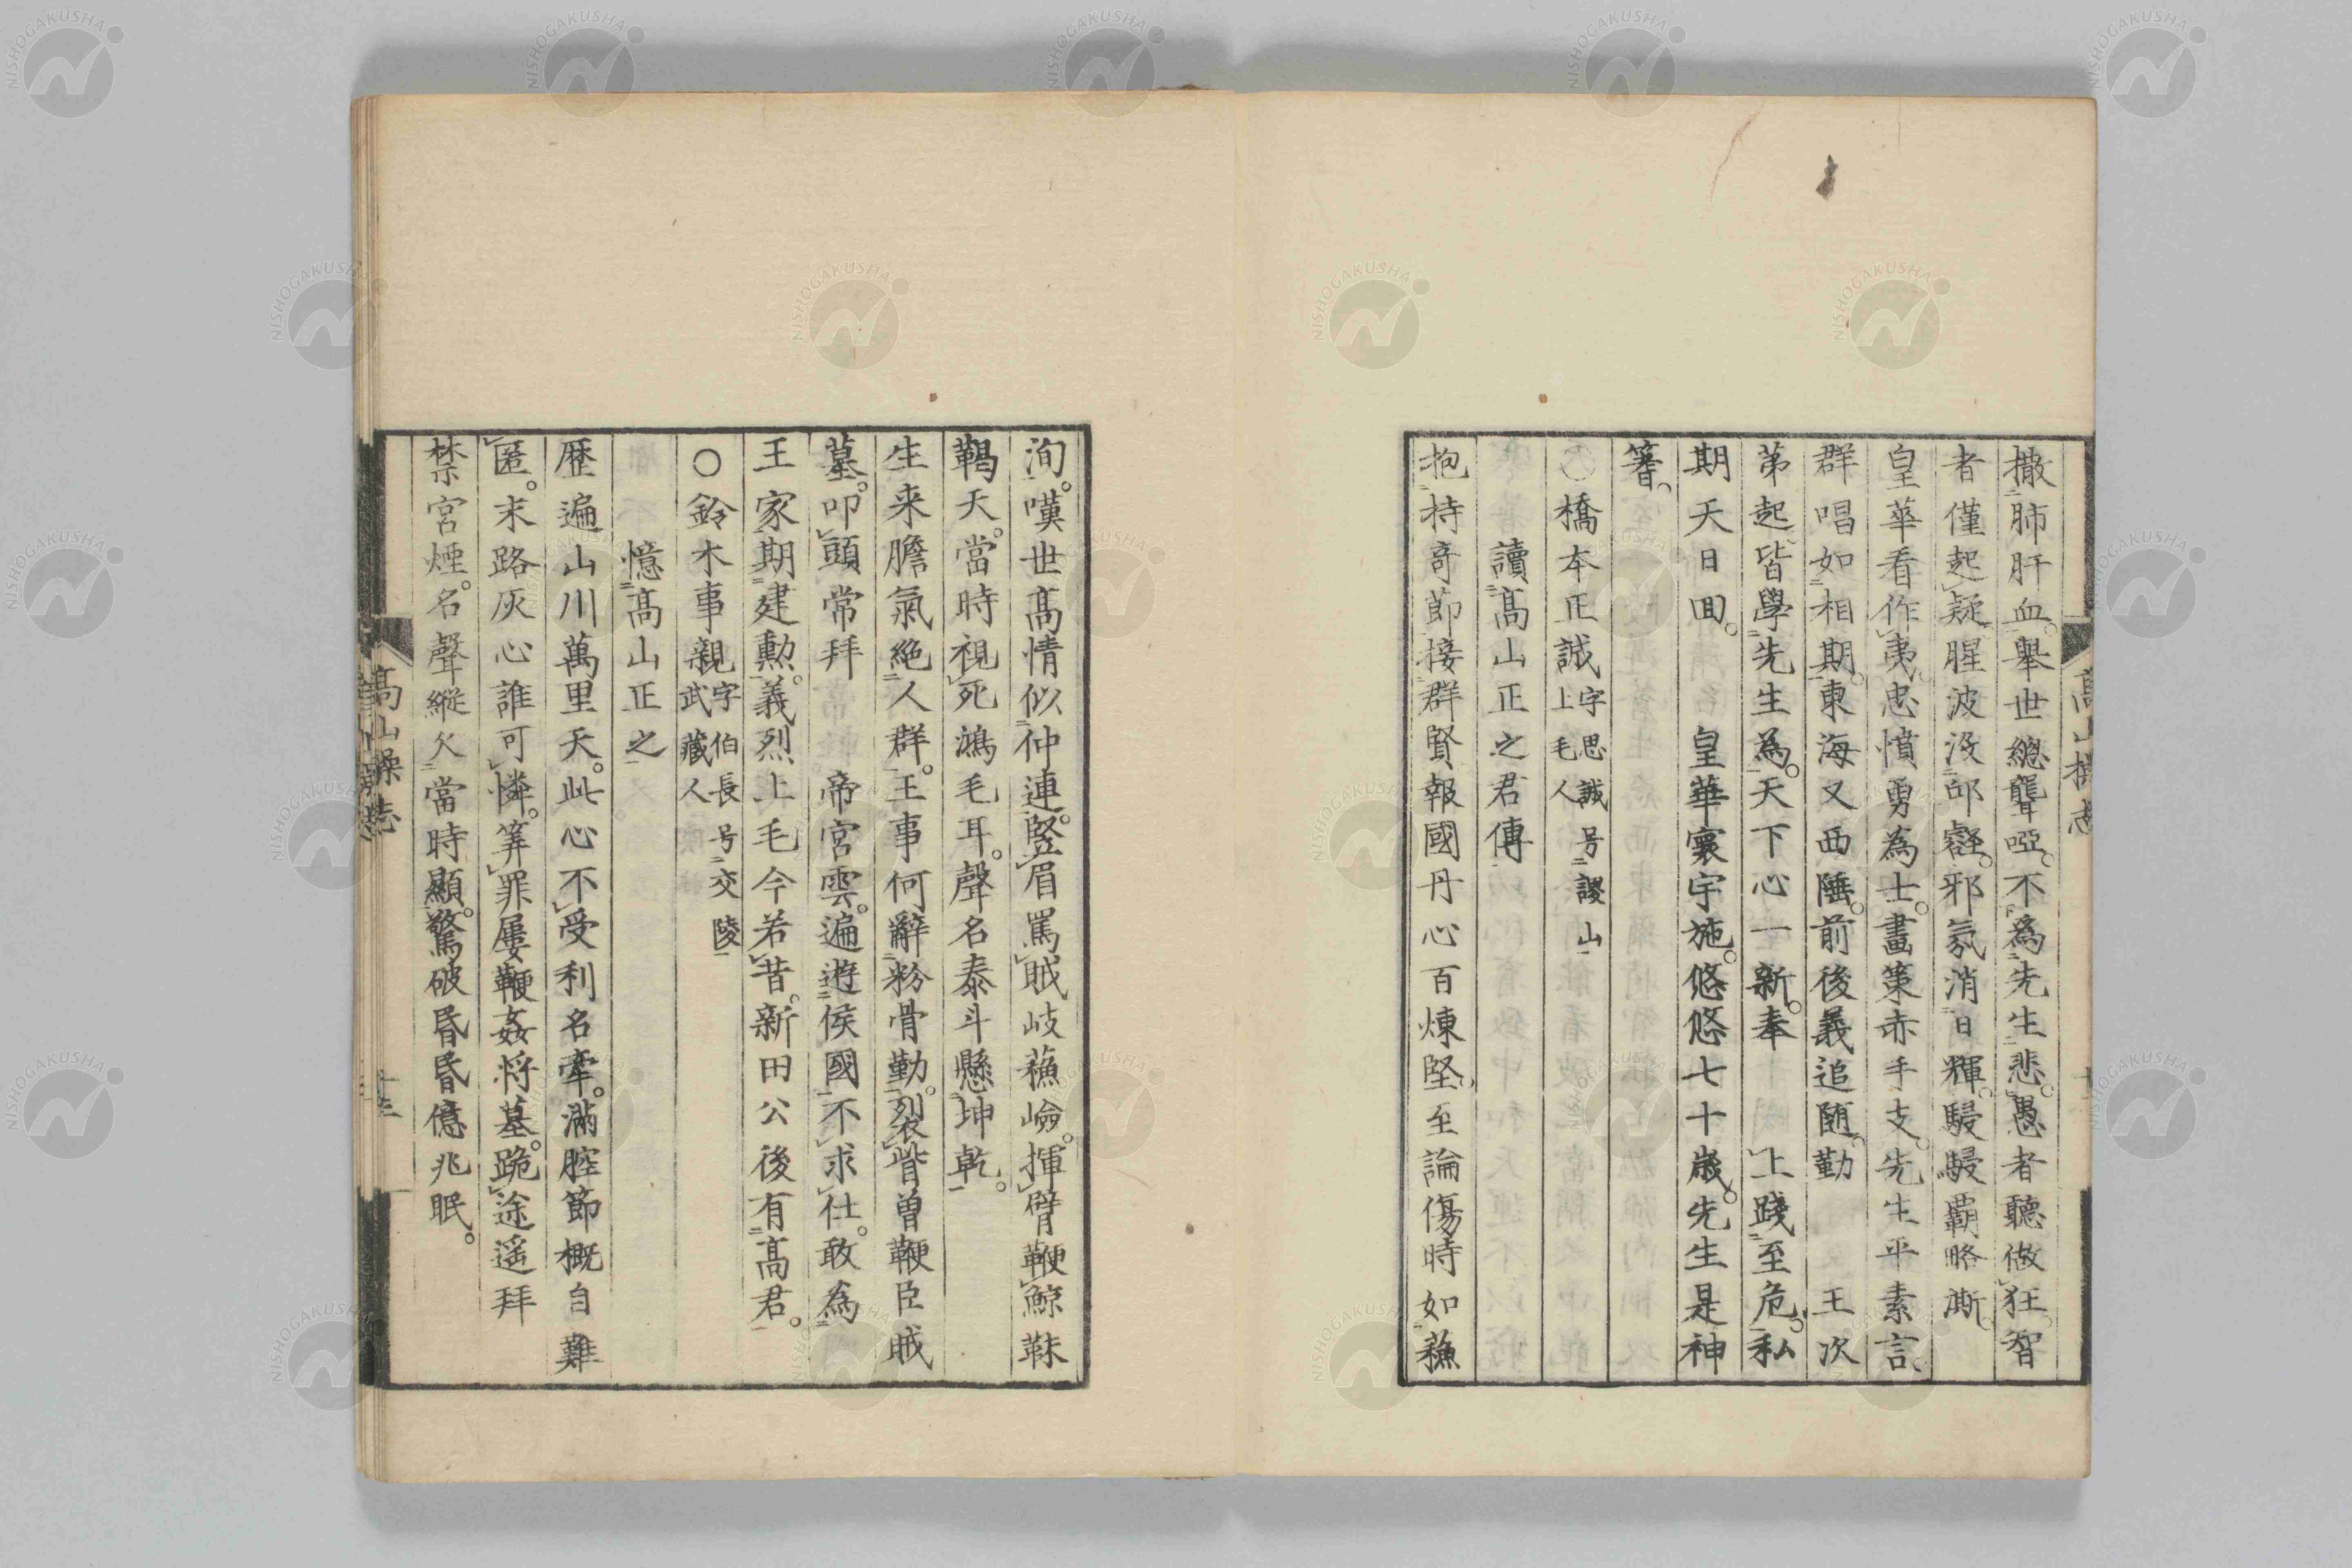 撒肺肝血。舉世總聾啞。不為先生悲。愚者聽做狂。智
者僅起疑腥波沒邱壑。邪氛消日輝。駸駸覇略澌。
皇華看作夷。忠憤勇為士。畫策赤手支。先生平素言。
群唱如相期。東海又西陲。前後義追随。勤　　王次
第起皆學先生為。天下心一新。奉　　上踐至危。私
期天日回。　　皇華寰宇施。悠悠七十歲。先生是神
蓍。
〇橋本正誠字思誠号謖山上毛人
讀高山正之君傳
抱持奇節接群賢報國丹心百煉堅。至論傷時如蘓
洵。嘆世高情似仲連。竪眉罵賊岐蘓嶮。揮臂鞭鯨靺
鞨天。當時視死鴻毛耳。聲名泰斗懸坤乾。
生来膽氣絶人群。王事何辭粉骨勤。裂眥曽鞭臣賊
墓。叩頭常拜　　帝宮雲。遍遊侯國不求仕。敢為
王家期建勲。義烈上毛今若昔。新田公後有高君。
〇鈴木事親字伯長号交陵武藏人
憶高山正之
歴遍山川萬里天。此心不受利名牽。滿腔節概自難
匿。末路灰心誰可憐。筭罪屢鞭姦将墓。跪途遥拜
禁宮煙。名聲縱欠當時顯。驚破昏昏億兆眠。
高山操志
十三
NISHOGAKUSHA